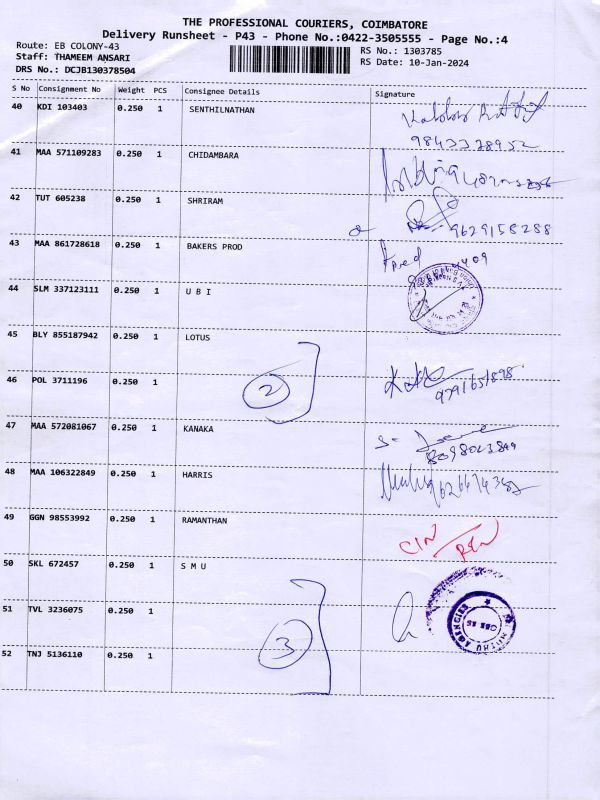 THE PROFESSIONAL COURIERS, COIMBATORE
Delivery Runsheet - P43 - Phone No.:0422-3505555 - Page No.:4
Route: EB COLONY-43
RS No.: 1303785
Staff: THAMEEM ANSARI
RS Date: 10-Jan-2024
DRS No.: DCJB130378504
S No Consignment No Weight PCS Consignee Details Signature
40 KDI 103403 0.250 1 SENTHILNATHAN
9843328952
41 MAA 571109283 0.250 1 CHIDAMBARA
42 TUT 605238 0.250 1 SHRIRAM
9629158288
43 MAA 861728618 0.250 1 BAKERS PROD
44 SLM 337123111 0.250 1 U B I
45 BLY 855187942 0.250 1 LOTUS
2
46 POL 3711196 0.250 1
9791651898
47 MAA 572081067 0.250 1 KANAKA
48 MAA 106322849 0.250 1 HARRIS
49 GGN 98553992 0.250 1 RAMANTHAN
50 SKL 672457 0.250 1 S M U
51 TVL 3236075 0.250 1
3
52 TNJ 5136110 0.250 1